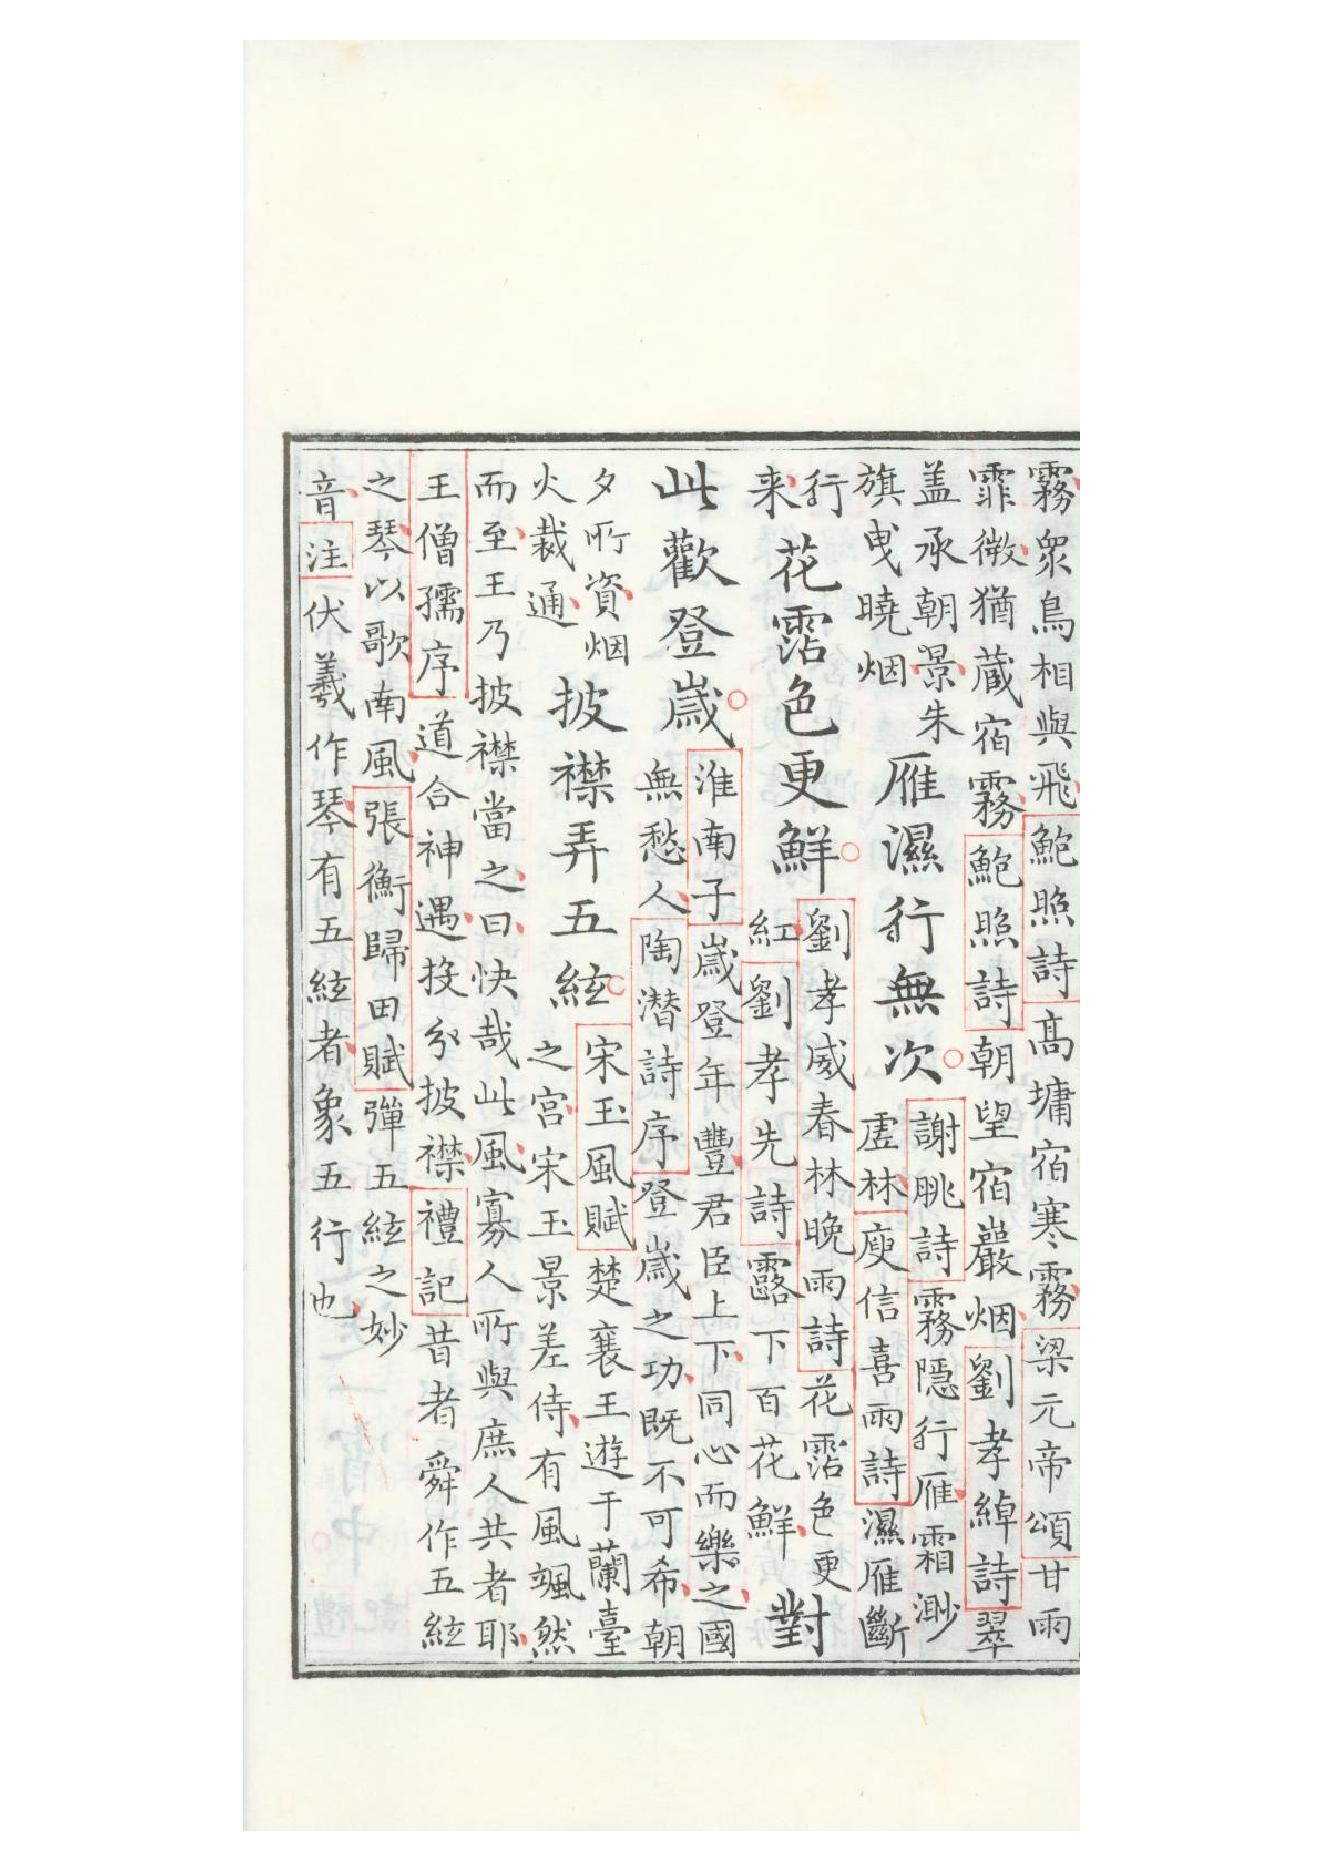 霧眾鳥相與飛鮑照詩高墉宿寒霧梁元帝頌甘雨
霏微猶蔵宿霧鮑照詩朝望宿巖烟劉孝綽詩翠
盖承朝景朱
旗曳曉烟
雁濕行無次
謝朓詩霧隠行雁霜渺
虗林庾信喜雨詩濕雁斷
行
来
花霑色更鮮
劉孝威春林晚雨詩花霑色更
紅劉孝先詩露下百花鮮
對
此歡登歲
淮南子歲登年豐君臣上下同心而樂之國
無愁人陶潛詩序登歲之功既不可希朝
夕所資烟
火裁通
披襟弄五絃
宋玉風賦楚襄王遊于蘭臺
之宮宋玉景差侍有風颯然
而至王乃披襟當之曰快哉此風寡人所與庶人共者耶
王僧孺序道合神遇投分披襟禮記昔者舜作五絃
之琴以歌南風張衡歸田賦彈五絃之妙
音注伏羲作琴有五絃者象五行也